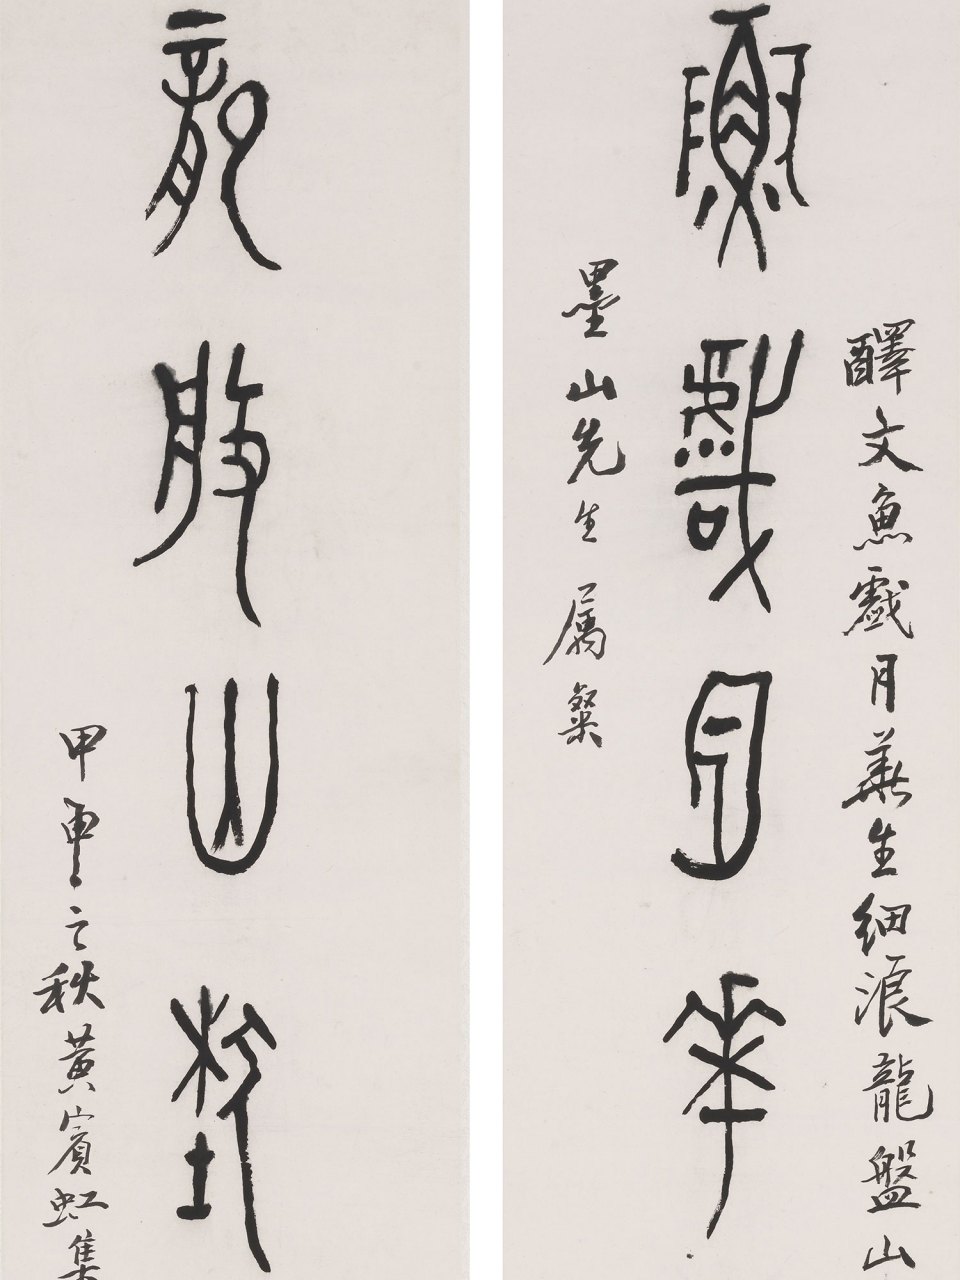 醳文魚戲月華生細浪龍盤山
魚戲月華
墨山先生屬粲
龍般山
甲申之秋黃賓虹集